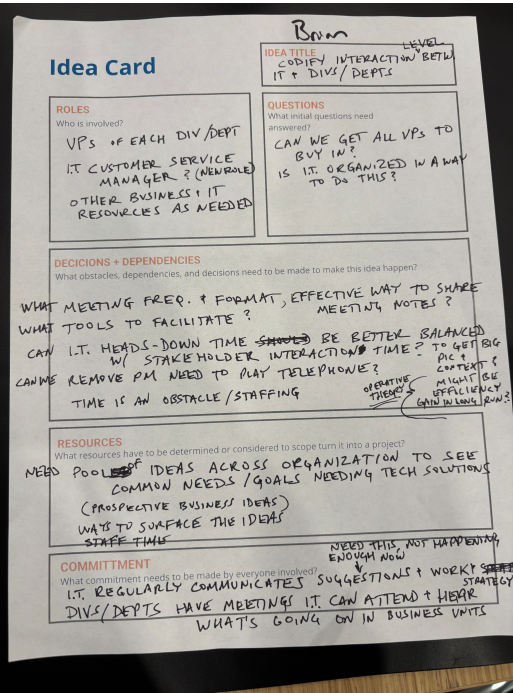 Brian
Idea Card
IDEA TITLE
LEVEL
CODIFY INTERACTION BETW
IT + DIVS/DEPTS
ROLES
Who is involved?
VPs OF EACH DIV/DEPT
I.T CUSTOMER SERVICE
MANAGER? (NEW ROLE)
OTHER BUSINESS + IT
RESOURCES AS NEEDED
QUESTIONS
What initial questions need
answered?
CAN WE GET ALL VPs TO
BUY IN?
IS I.T. ORGANIZED IN A WAY
TO DO THIS?
DECICIONS + DEPENDENCIES
What obstacles, dependencies, and decisions need to be made to make this idea happen?
WHAT MEETING FREQ. + FORMAT, EFFECTIVE WAY TO SHARE
MEETING NOTES?
WHAT TOOLS TO FACILITATE?
CAN I.T. HEADS-DOWN TIME BE BETTER BALANCED
W/ STAKEHOLDER INTERACTION TIME? TO GET BIG
PIC +
CONTEXT?
CAN WE REMOVE PM NEED TO PLAY TELEPHONE?
TIME IS AN OBSTACLE/STAFFING
OPERATIVE
THEORY
MIGHT BE
EFFICIENCY
GAIN IN LONG RUN?
RESOURCES
What resources have to be determined or considered to scope turn it into a project?
NEED POOL OF IDEAS ACROSS ORGANIZATION TO SEE
COMMON NEEDS/GOALS NEEDING TECH SOLUTIONS
(PROSPECTIVE BUSINESS IDEAS)
WAYS TO SURFACE THE IDEAS
STAFF TIME
COMMITTMENT
What commitment needs to be made by everyone involved?
NEED THIS, NOT HAPPENING
ENOUGH NOW
I.T. REGULARLY COMMUNICATES SUGGESTIONS + WORK +
STRATEGY
DIVS/DEPTS HAVE MEETINGS I.T. CAN ATTEND + HEAR
WHAT'S GOING ON IN BUSINESS UNITS